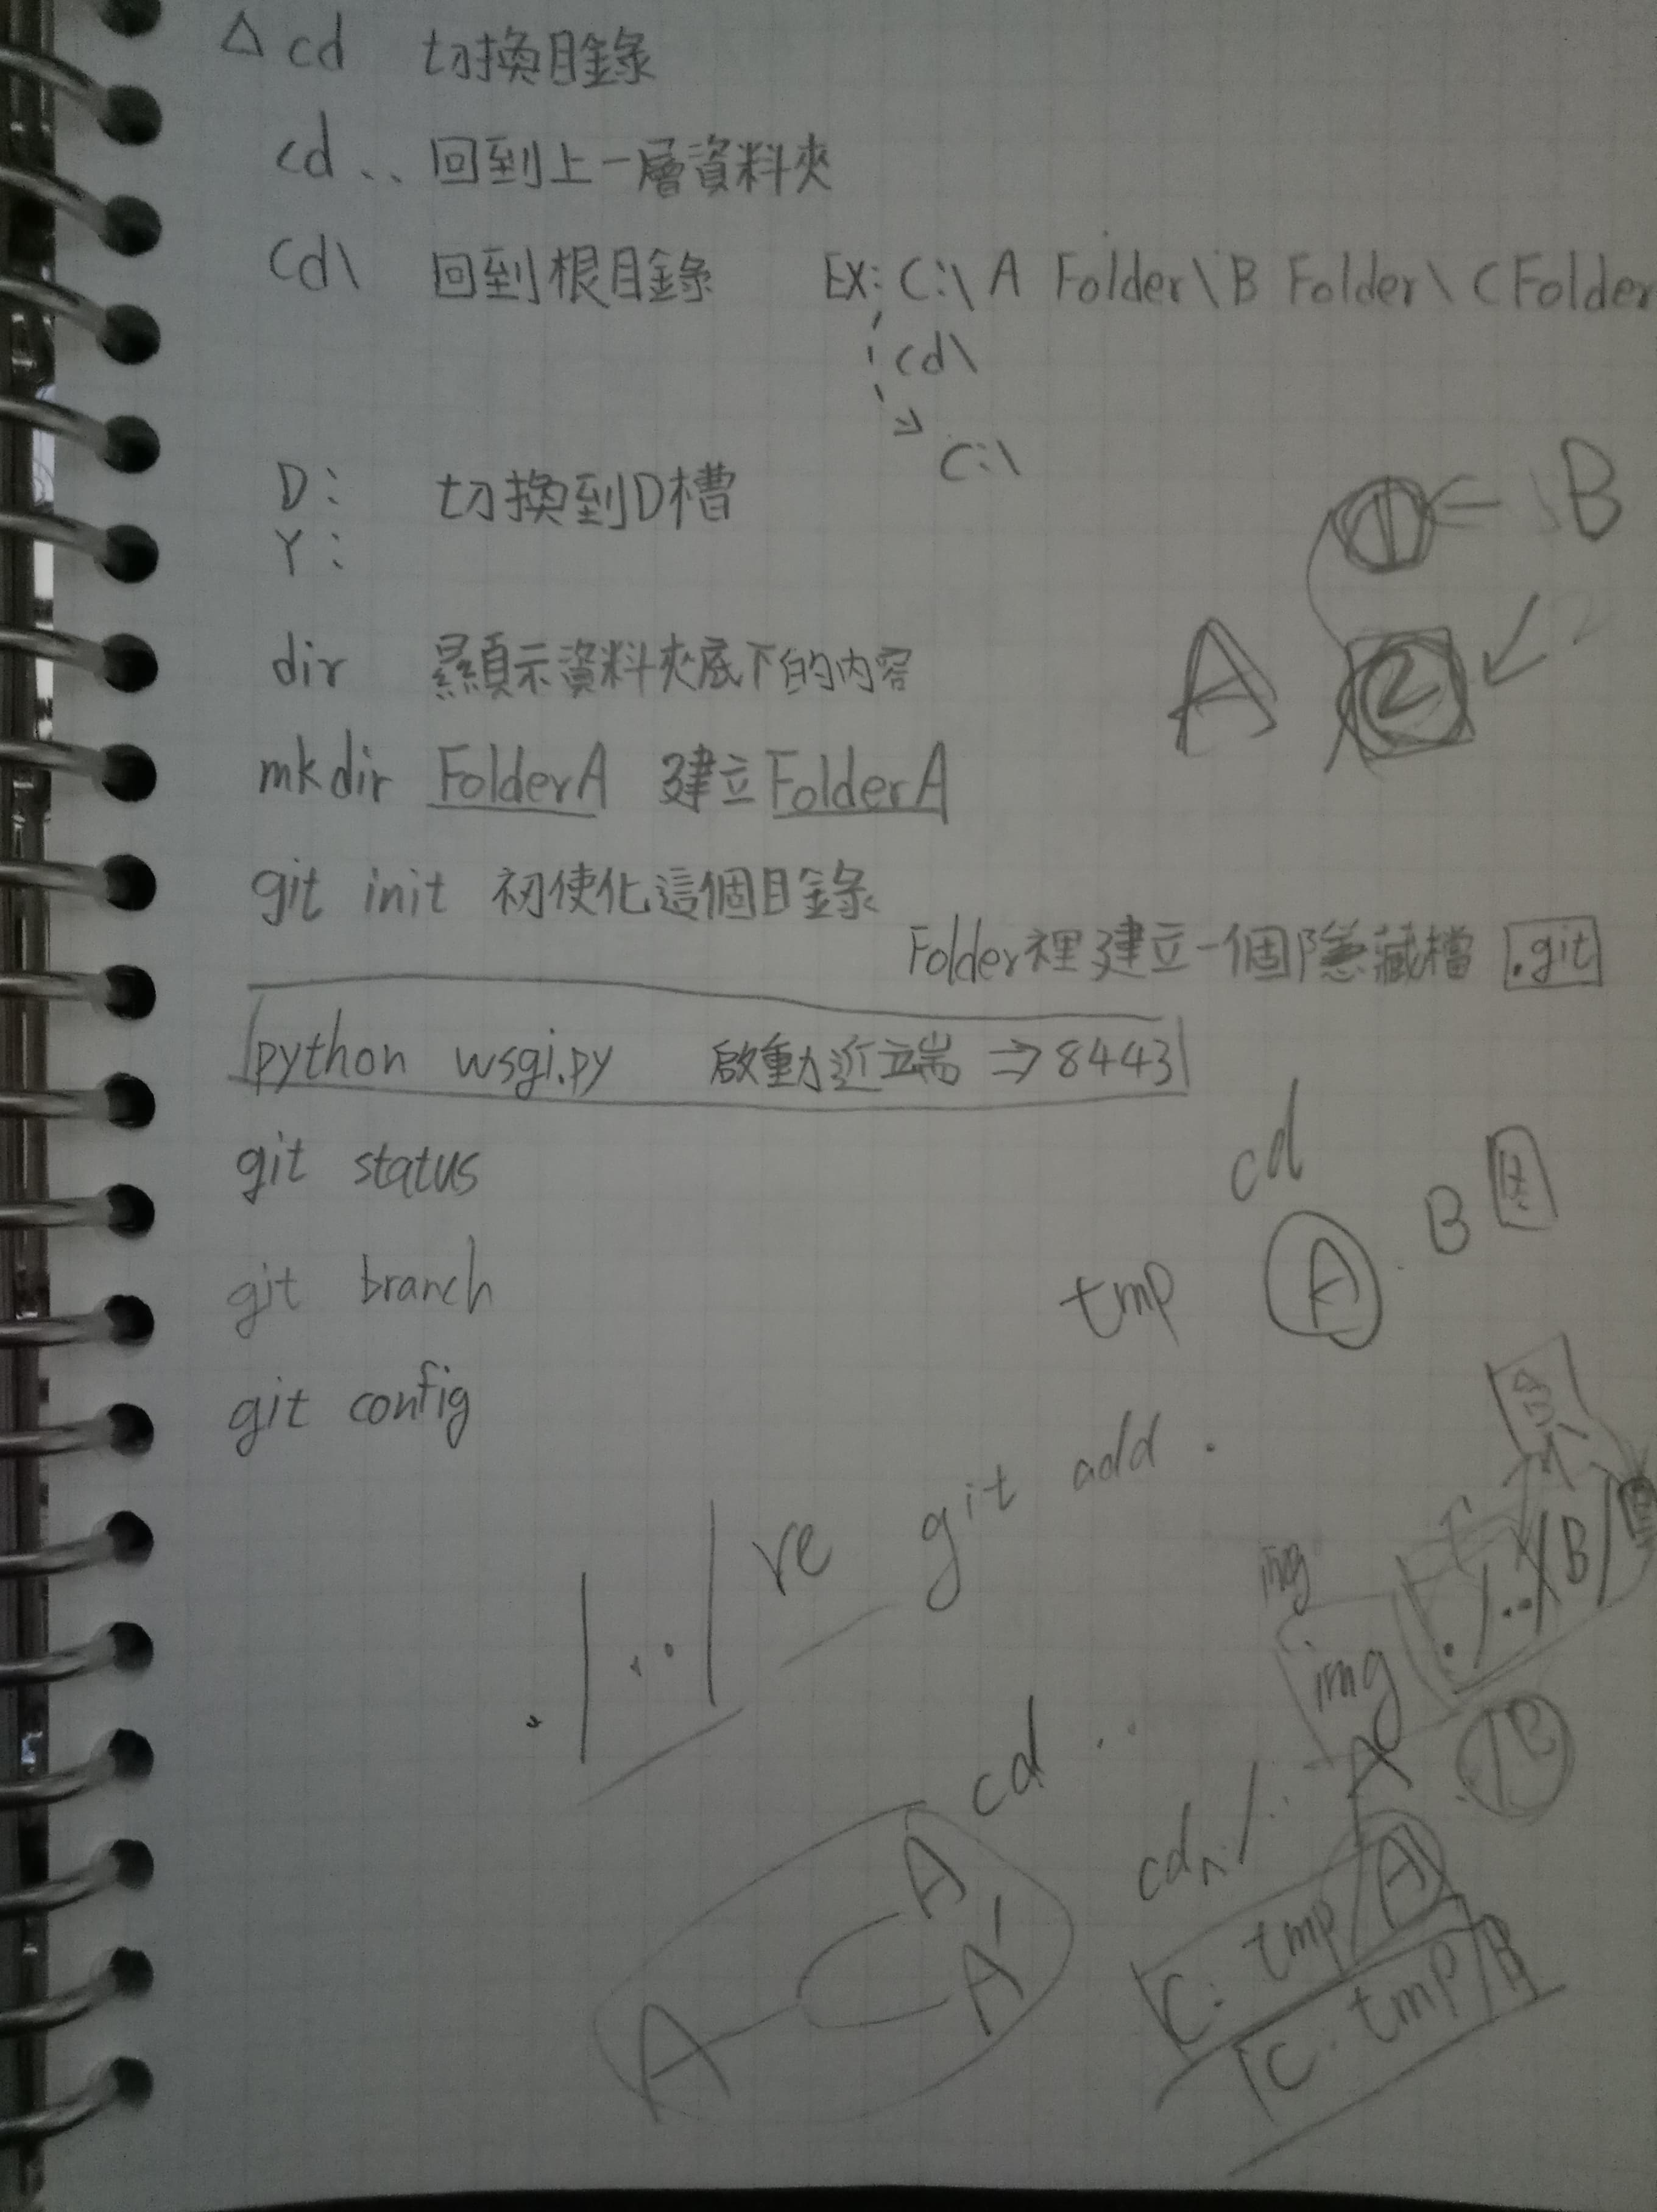 △ cd 切換目錄
cd .. 回到上一層資料夾
cd\ 回到根目錄 EX: C:\A Folder\B Folder\C Folder
cd\
C:\
D: 切換到D槽
Y:
① ← B
A ②
dir 顯示資料夾底下的內容
mkdir FolderA 建立FolderA
git init 初使化這個目錄
Folder裡建立一個隱藏檔 .git
python wsgi.py 啟動近端 ⇒ 8443
git status
cd
B
git branch
tmp A
git config
git add .
./../re
img
./../B/
img
cd ..
A
cd ./..
A
A'
A
C: tmp/A
C: tmp/B